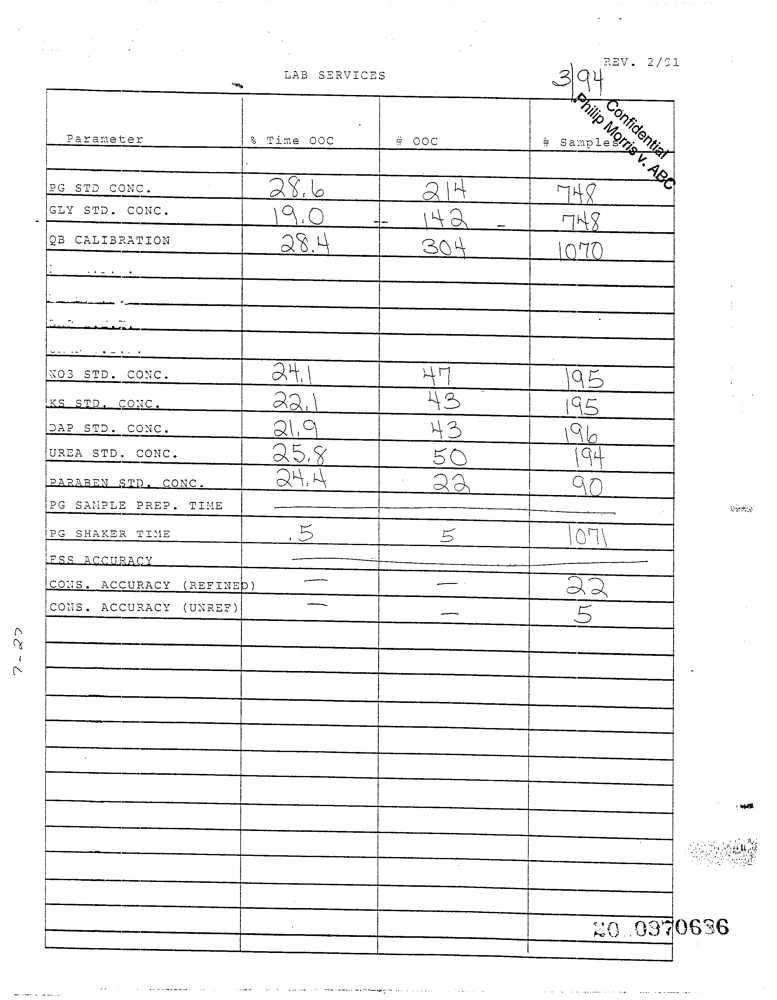 REV. 2/91
LAB SERVICES
3/94
Confidential
Philip Morris v. ABC
Parameter % Time OOC # OOC # Samples
PG STD CONC. 28.6 214 748
GLY STD. CONC. 19.0 142 748
QB CALIBRATION 28.4 304 1070
NO3 STD. CONC. 24.1 47 195
KS STD. CONC. 22.1 43 195
DAP STD. CONC. 21.9 43 196
UREA STD. CONC. 25.8 50 194
PARABEN STD. CONC. 24.4 22 90
PG SAMPLE PREP. TIME
PG SHAKER TIME .5 5 1071
ESS ACCURACY
CONS. ACCURACY (REFINED) — — 22
CONS. ACCURACY (UNREF) — — 5
7-27
0370636